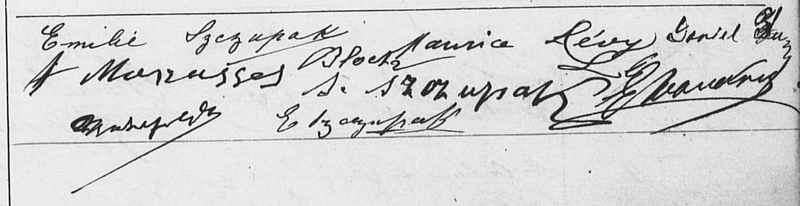 Emilie Szczupak Maurice Lévy Daniel
Manasses Bloch S. Szczupak
E Szczupak